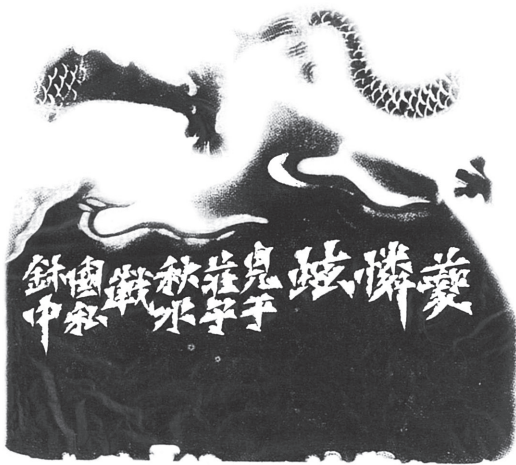 夔憐蚿
見于
莊子
秋水
戰
國私
鉥中